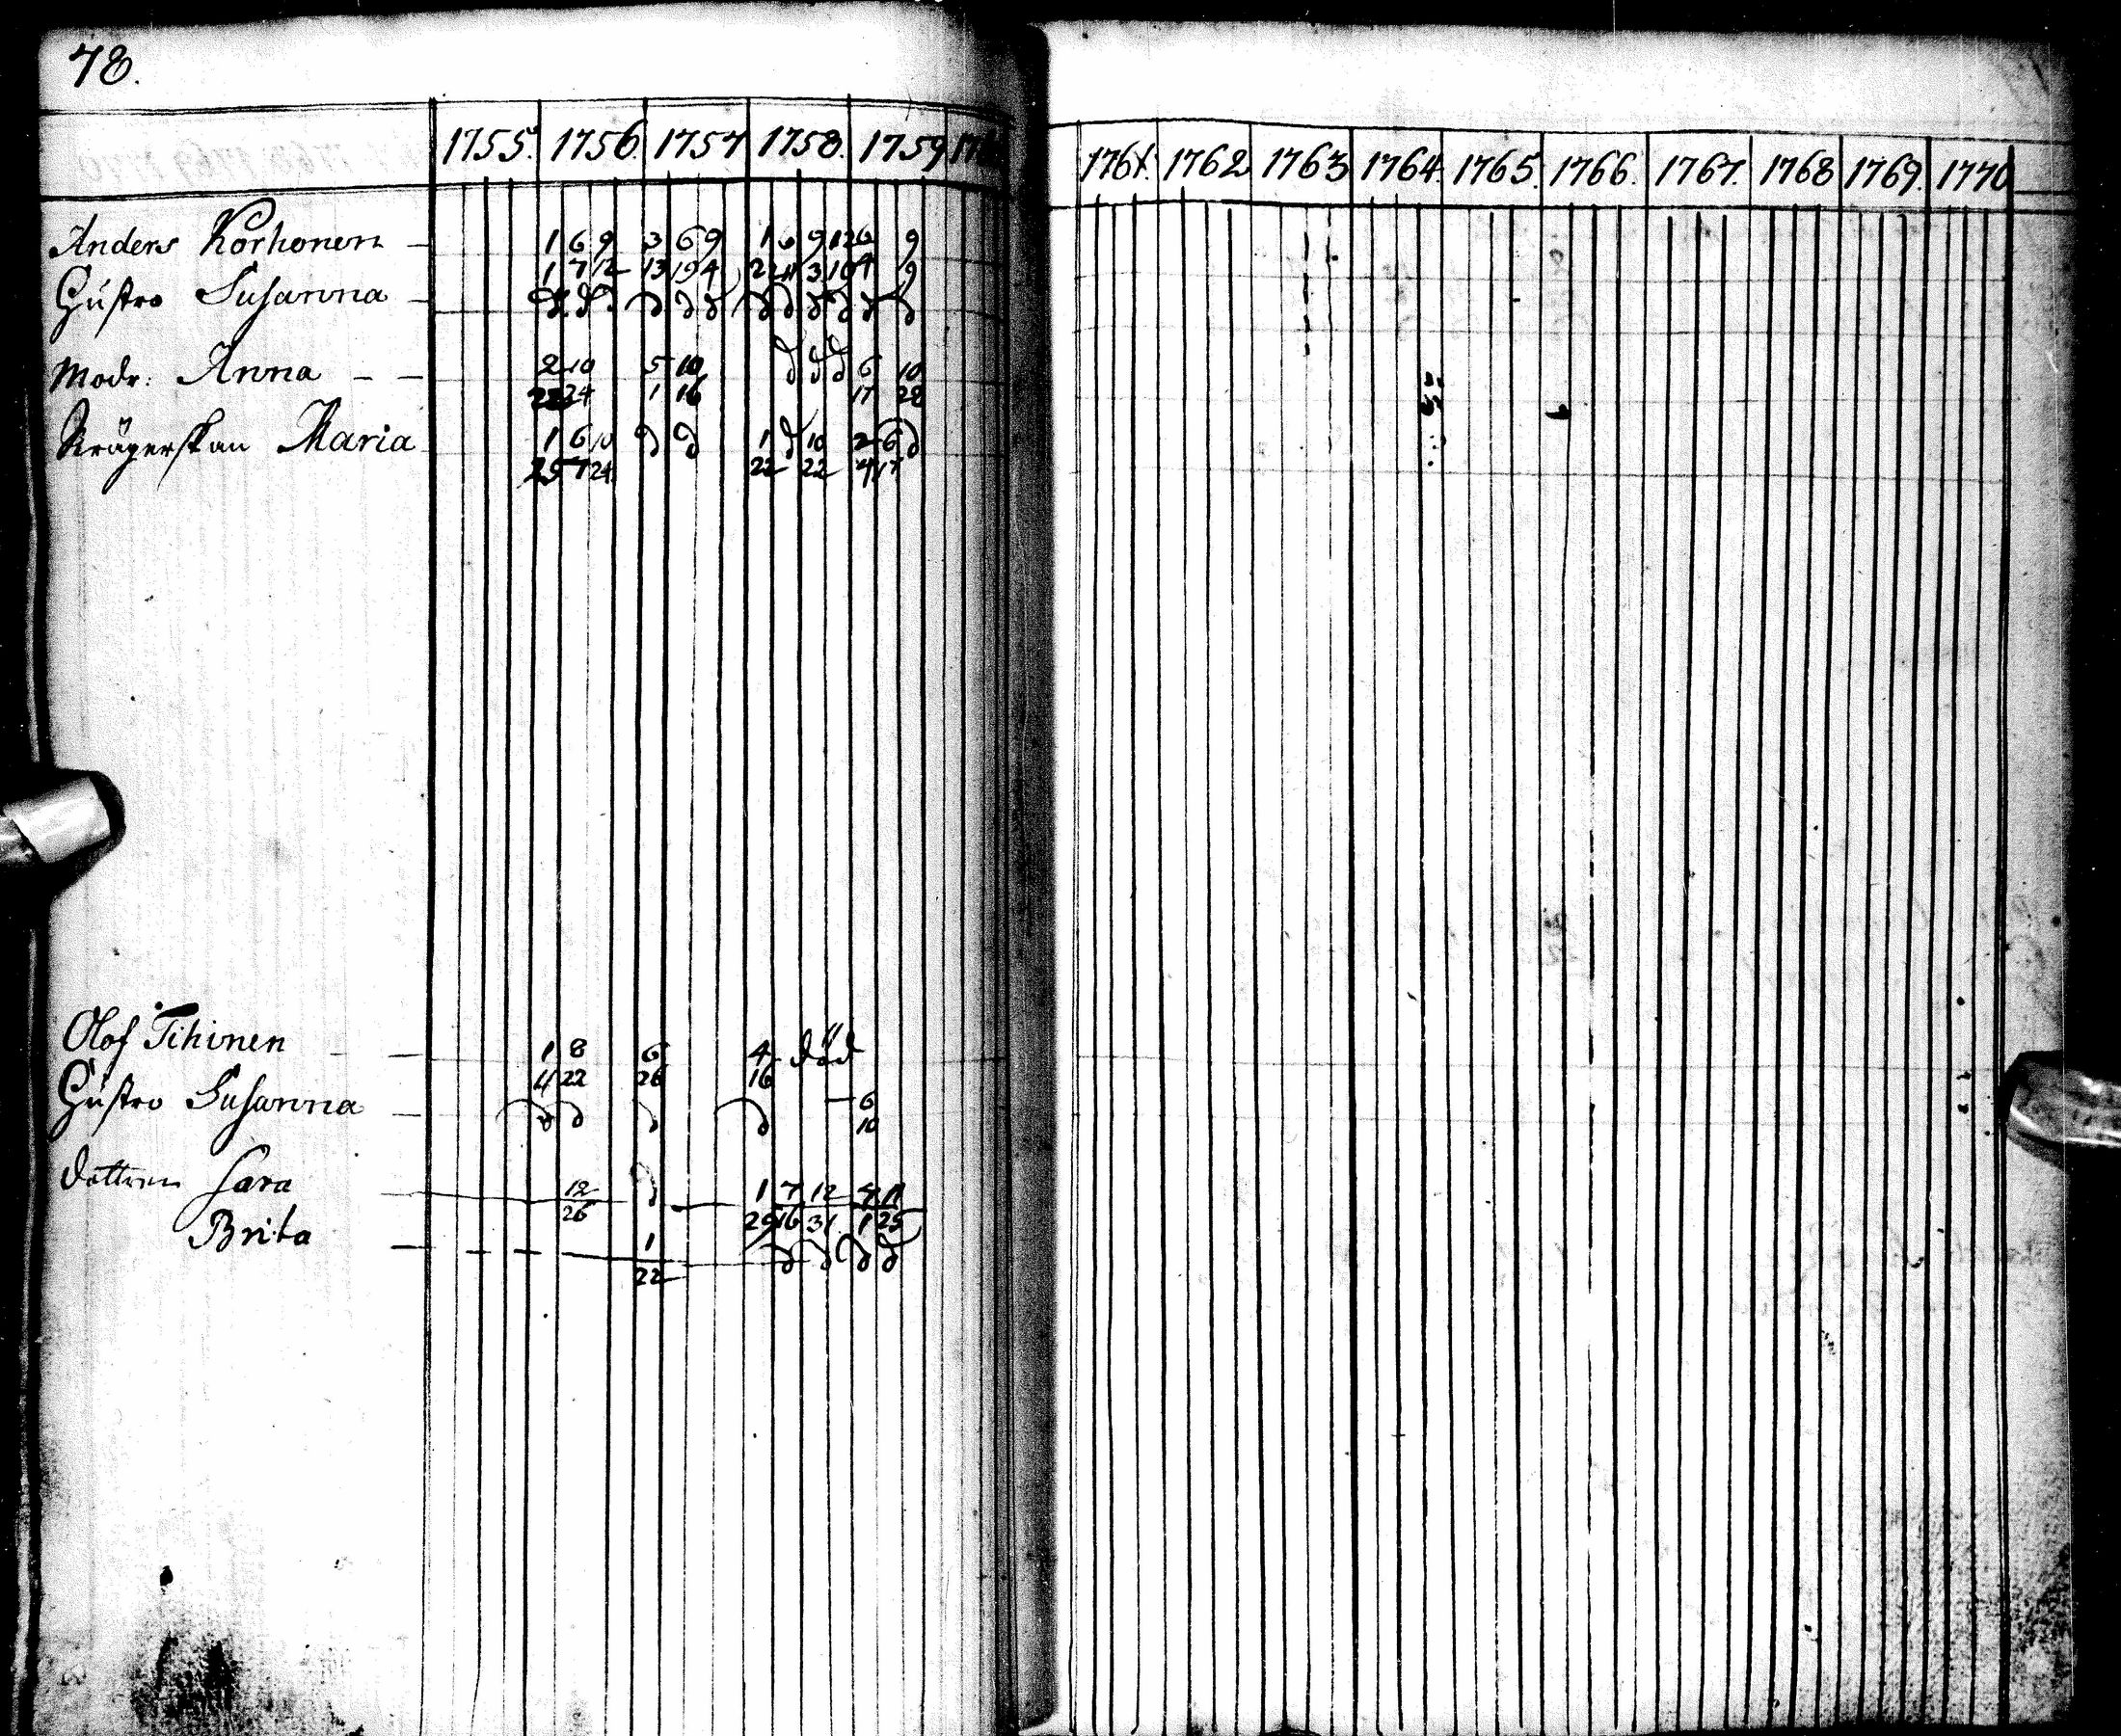 78.
1755. 1756. 1757 1758. 1759 1761. 1762 1763 1764. 1765. 1766. 1767. 1768 1769. 1770
Anders Korhonen — 1 6 9 3 6 9 1 6 9 12 6 9
1 7 12 13 19 4 22 11 3 10 4 9
Hustro Susanna — d d d d d d d d d d d
Modr: Anna — — 2 10 5 10 d d d 6 10
24 1 16 17 28
Maria 1 6 10 d d 1 d 10 2 6 d
25 7 24 22 22 4 17
Olof Tihinen — 1 8 6 4 död
4 22 26 16
Hustro Susanna — d d d d — 6
10
dottren Sara — 12 d 1 7 12 4 11
26 29 16 31 1 25
Brita — 1 d d d d
22